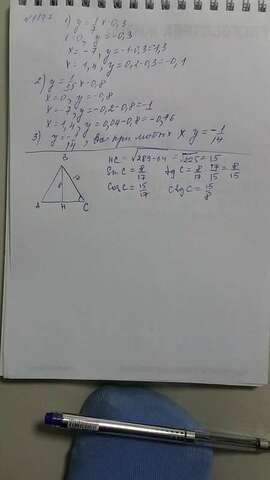 1) y = 1/7 x - 0,3
x = 0, y = -0,3
x = -7, y = -1-0,3 = 1,3
x = 1,4, y = 0,2-0,3 = -0,1
2) y = 1/35 x - 0,8
x = 0, y = -0,8
x = -7, y = -0,2-0,8 = -1
x = 1,4, y = 0,04-0,8 = -0,76
3) y = -1/14, при любых x y = -1/14
B
HC = √289-64 = √225 = 15
Sin C = 8/17 tg C = 8/17 · 17/15 = 8/15
Cos C = 15/17 Ctg C = 15/8
8
A H C